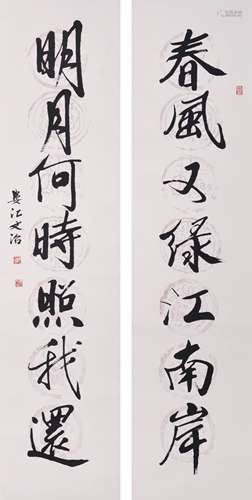 春風又綠江南岸
明月何時照我還
婁江文治